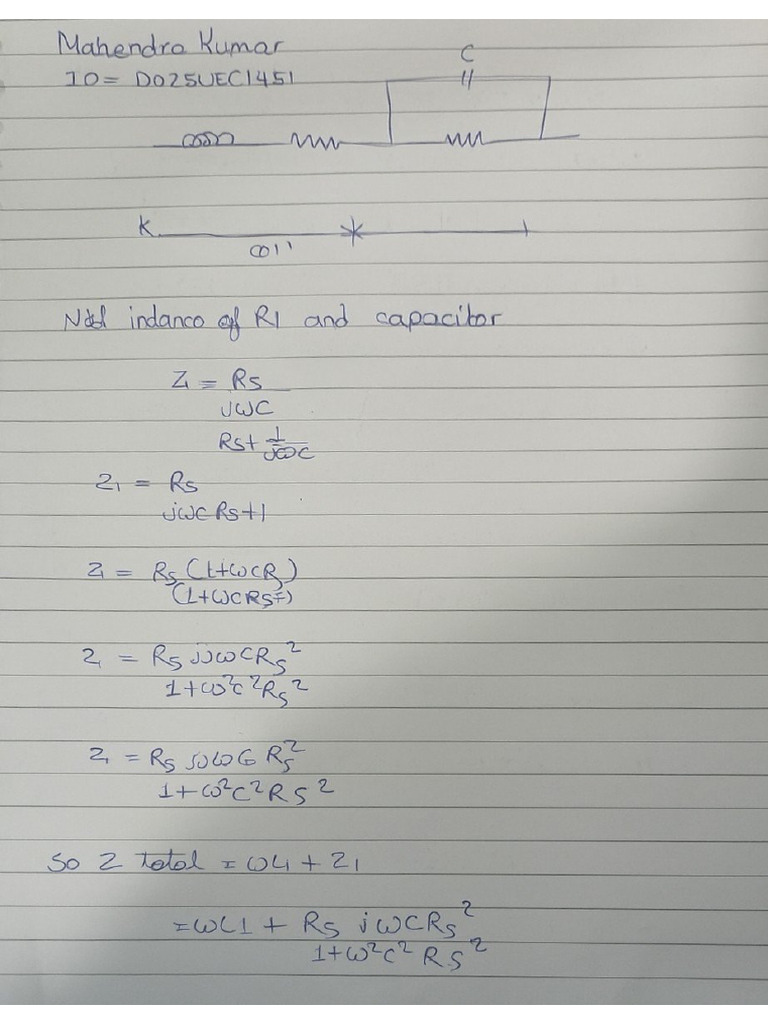 Mahendra Kumar
ID = DO25UEC1451
C
K
Ndd indance of R1 and capacitor
Z1 = Rs
jωC
Rs+ 1
jωC
Z1 = Rs
jωC Rs+1
Z1 = Rs (1+ωCR)
(1+ωCRS+)
Z1 = Rs jjωCRs²
1+ω²C²Rs²
Z1 = Rs jωωC Rs²
1+ω²C²RS²
So Z total = ωL1 + Z1
=ωL1 + Rs jωCRs²
1+ω²C² RS²